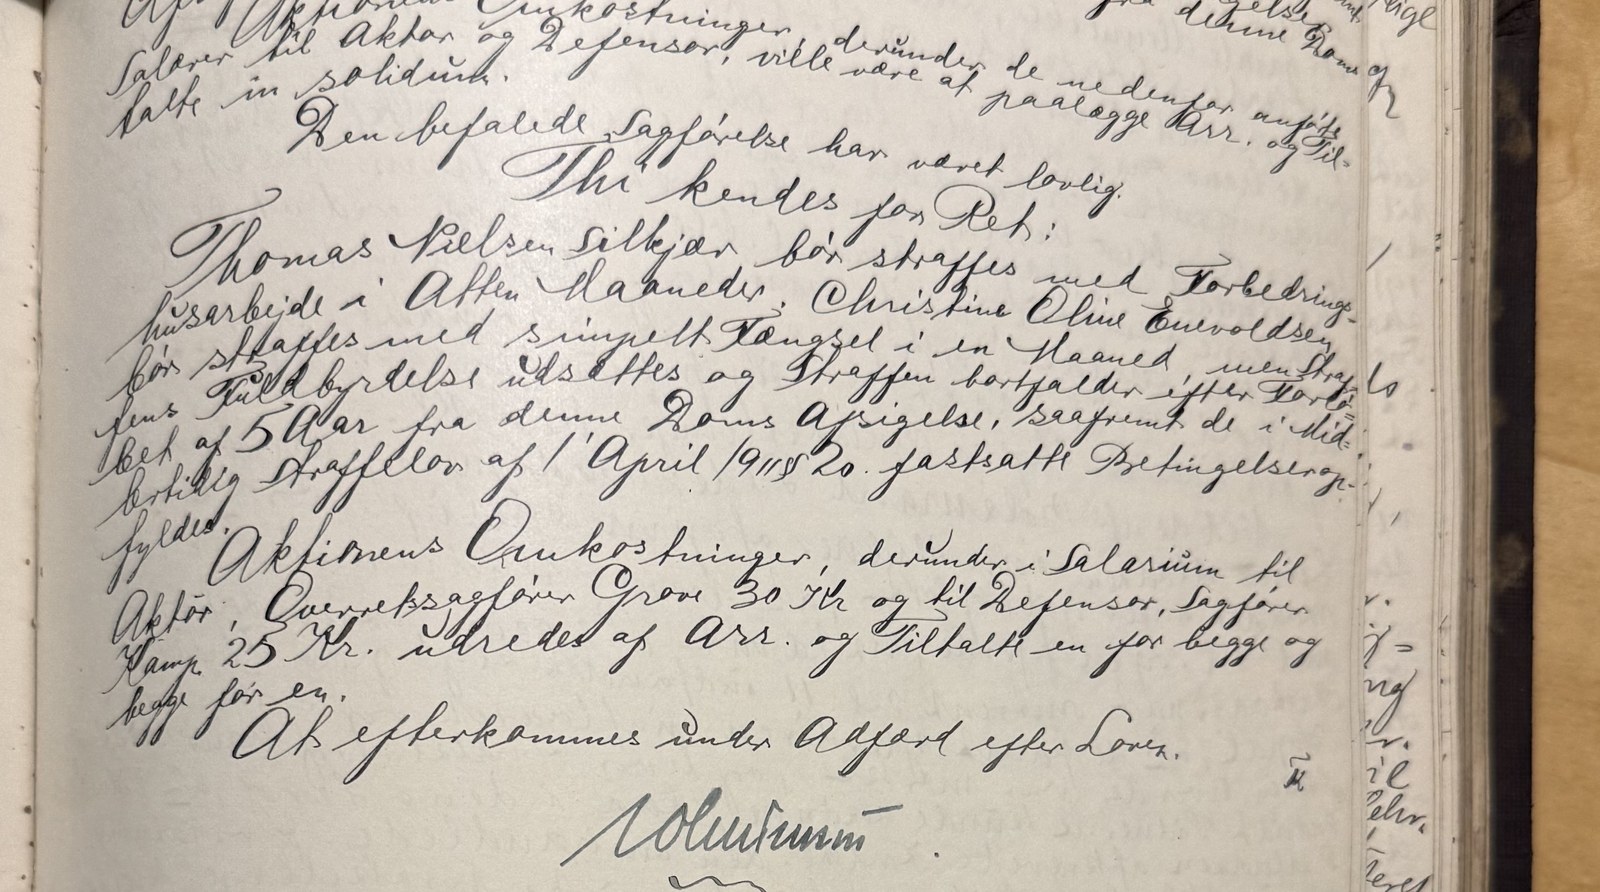 Aktionens Omkostninger, derunder de nedenfor anførte
Salærer til Aktor og Defensor, ville være at paalægge Arr. og Til-
talte in solidum.
Den befalede Sagførelse har været lovlig.
Thi kendes for Ret:
Thomas Nielsen Silkjær bør straffes med Forbedrings-
husarbejde i Atten Maaneder. Christine Oline Enevoldsen
bør straffes med simpelt Fængsel i en Maaned, men Straf-
fens Fuldbyrdelse udsættes og Straffen bortfalder efter Forlø-
bet af 5 Aar fra denne Doms Afsigelse, saafremt de i Mid-
lertidig Straffelov af 1' April 1911 § 20. fastsatte Betingelser op-
fyldes.
Aktionens Omkostninger, derunder i Salarium til
Aktor, Overretssagfører Grove 30 Kr og til Defensor, Sagfører
Kamp 25 Kr. udredes af Arr. og Tiltalte en for begge og
begge for en.
At efterkommes under Adfærd efter Loven.